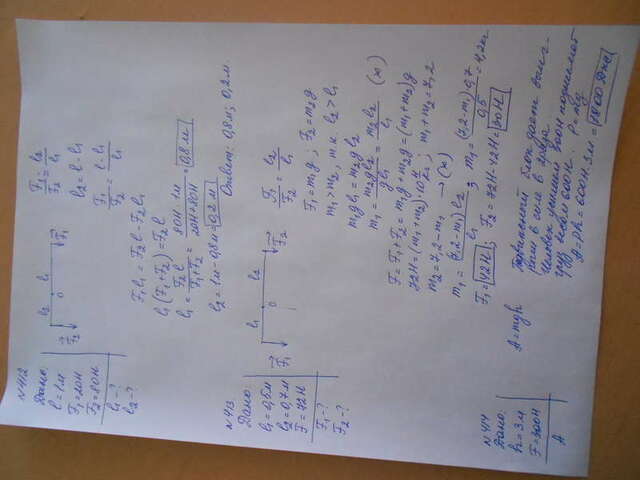 N 412
Дано:
l = 1м
F₁ = 20Н
F₂ = 80Н.
l₁ - ?
l₂ - ?
l₂ l₁
F₂ 0 F₁
F₁/F₂ = l₂/l₁
l₂ = l - l₁
F₁/F₂ = l - l₁/l₁
F₁l₁ = F₂l - F₂l₁
l₁(F₁+F₂) = F₂l
l₁ = F₂l/F₁+F₂ = 80Н·1м/20Н+80Н = 0,8м
l₂ = 1м - 0,8м = 0,2м.
Ответ: 0,8м; 0,2м.
N 413
Дано:
l₁ = 0,5м
l₂ = 0,7м
F = 72Н
F₁ - ?
F₂ - ?
l₁ l₂
F₁ 0 F₂
F₁/F₂ = l₂/l₁
F₁ = m₁g; F₂ = m₂g
m₁ > m₂, т.к. l₂ > l₁
m₁gl₁ = m₂gl₂
m₁ = m₂gl₂/gl₁ = m₂l₂/l₁ (х)
F = F₁+F₂ = m₁g + m₂g = (m₁+m₂)g
72Н = (m₁+m₂)·10; m₁+m₂ = 7,2
m₂ = 7,2 - m₁ → (х)
m₁ = (7,2-m₁)l₂/l₁; m₁ = (7,2-m₁)0,7/0,5 = 4,2кг
F₁ = 42Н; F₂ = 72Н - 42Н = 30Н
N 414
Дано:
h = 3м
F = 300Н
A
A = mgh
Подвижный блок дает выиг-
рыш в силе в 2 раза
Человек усилием 300Н поднимает
груз весом 600Н. P = mg
A = Ph = 600Н·3м = 1800 Дж